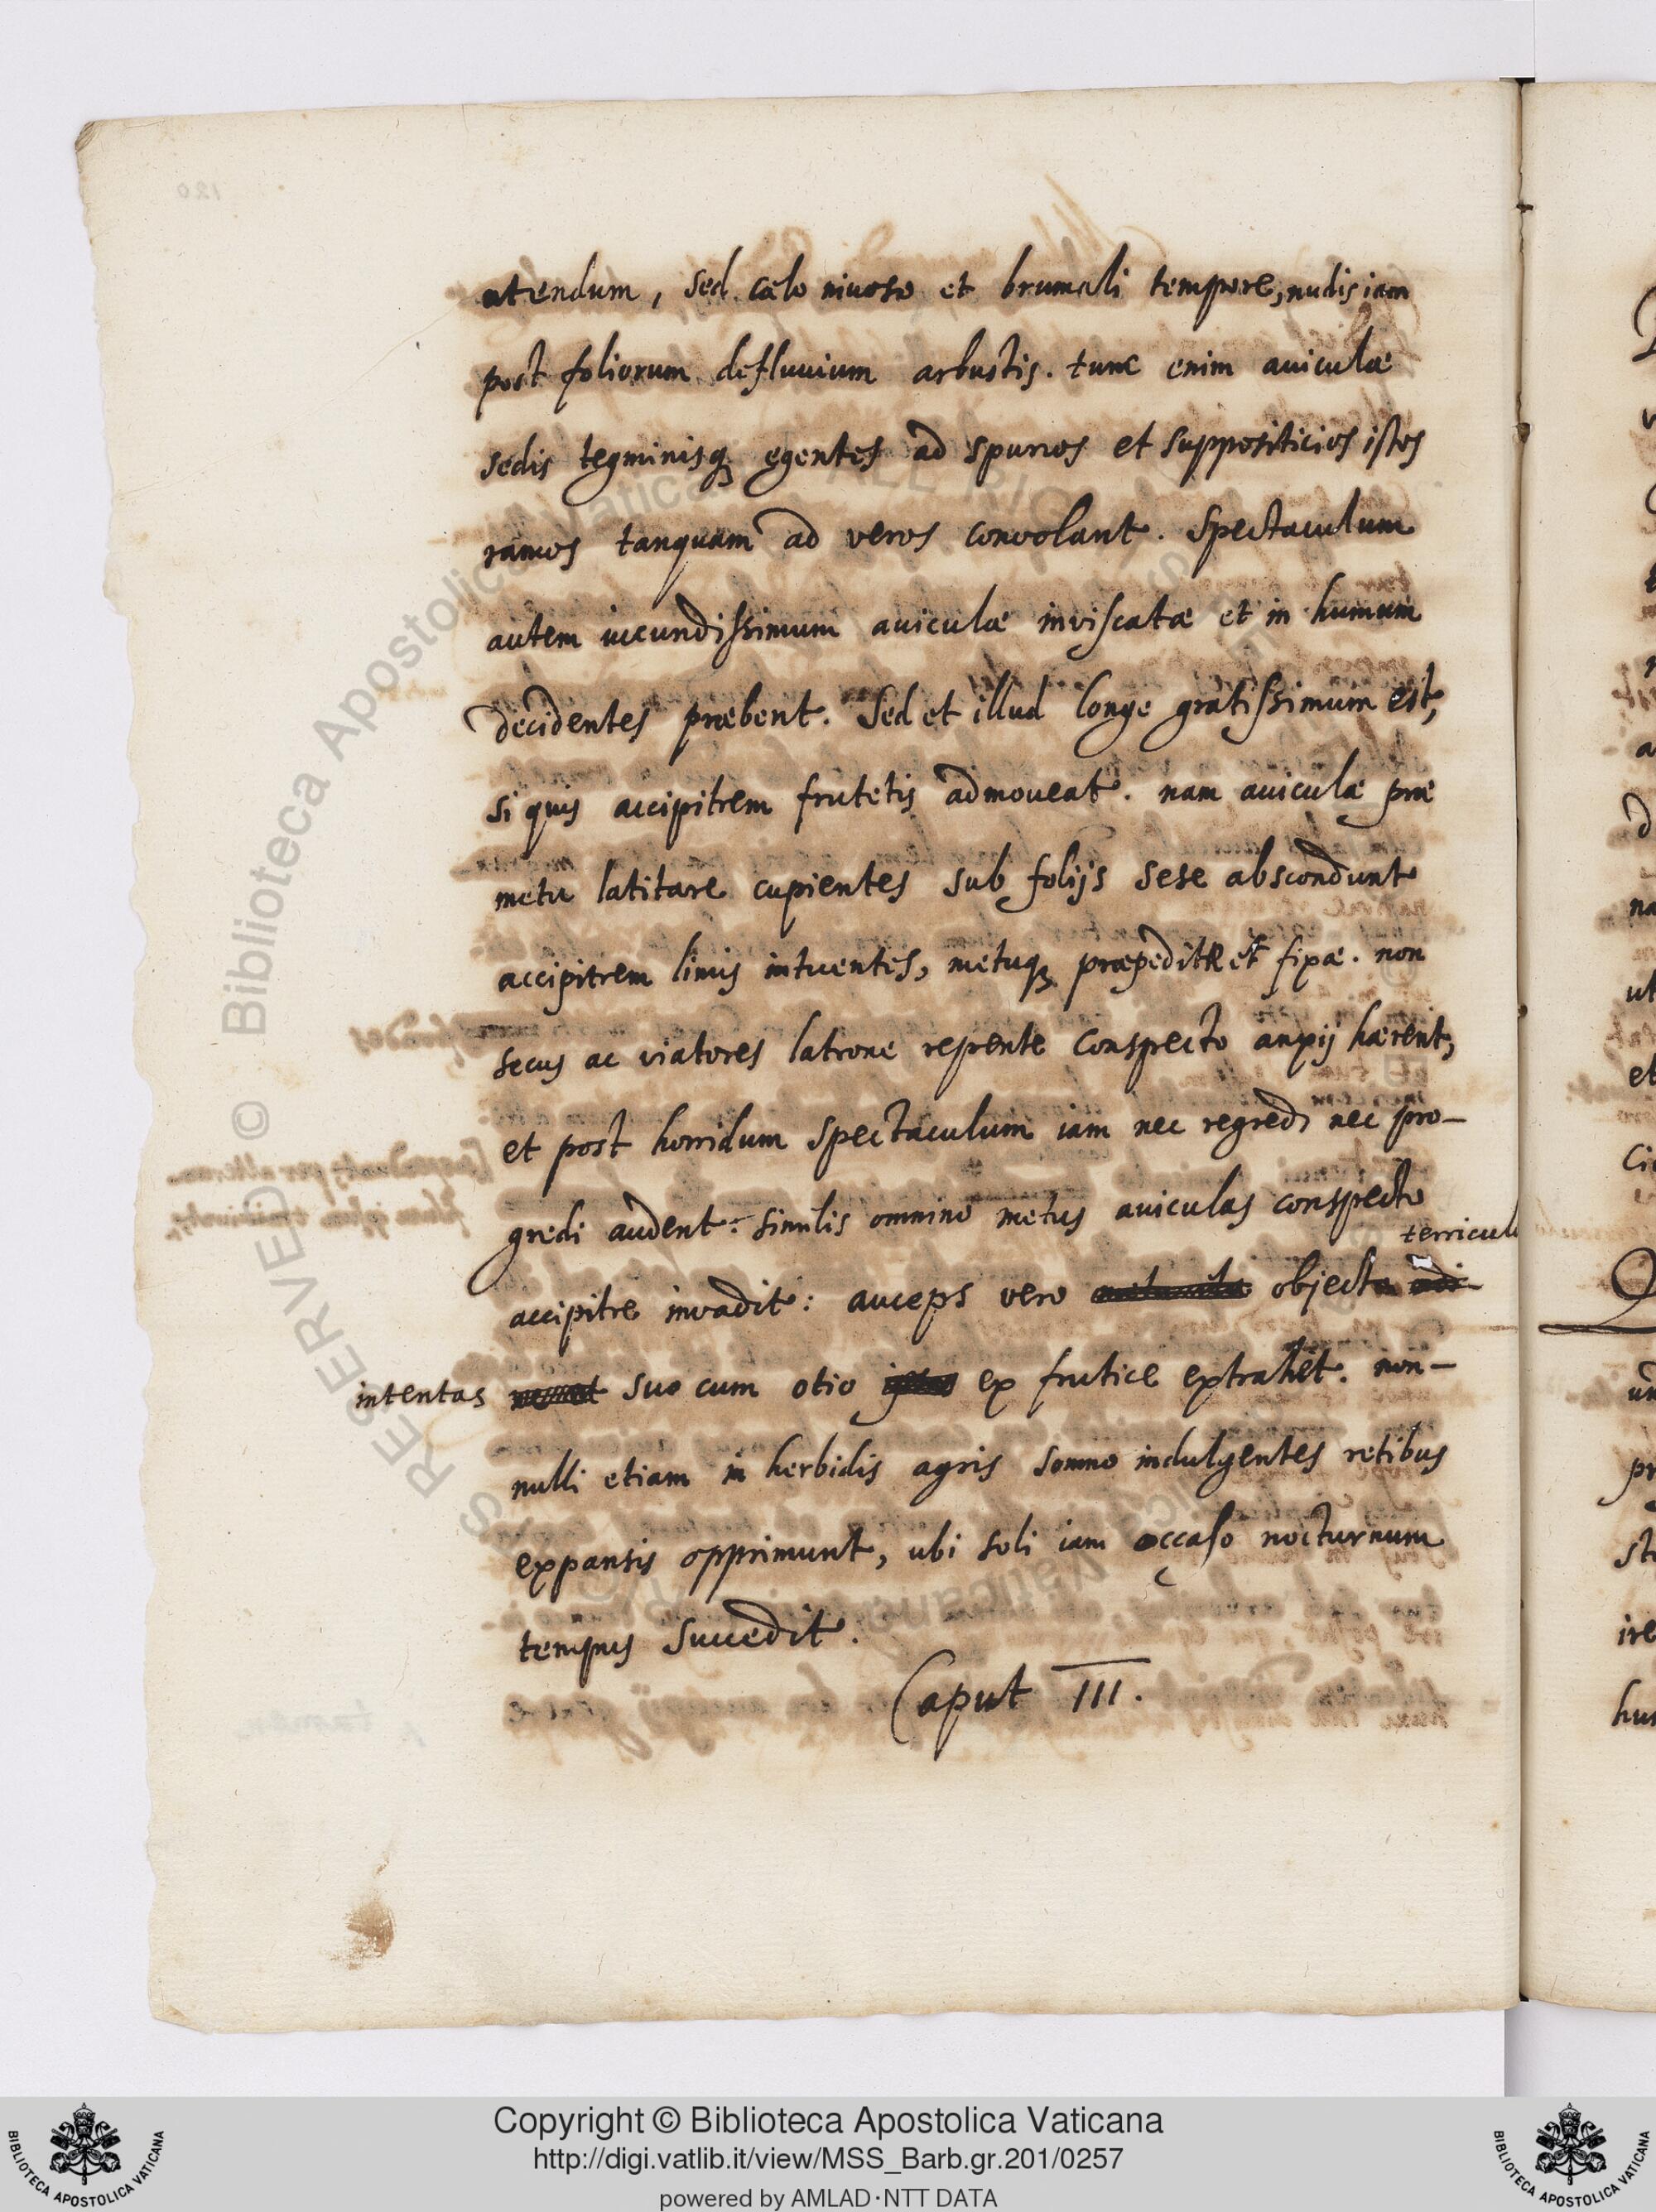 utendum, sed cælo nivoso et brumali tempore, nudis iam
post foliorum defluuium arbustis. tunc enim auiculæ
sedis tegminisq; egentes ad spurios et supposititicios istos
ramos tanquam ad veros convolant. Spectaculum
autem iucundissimum auiculæ inviscatæ et in humum
decidentes præbent. Sed et illud longe gratissimum est,
si quis accipitrem frutetis admoueat. nam auiculæ præ
metu latitare cupientes sub folijs sese abscondunt
accipitrem limis intuentes, metuq; præpeditæ et fixæ. non
secus ac viatores latrone repente conspecto anxij hærent,
et post horridum spectaculum iam nec regredi nec pro-
gredi audent: similis omnino metus auiculas conspecto
terricul
accipitre invadit: auceps vero objecto
intentas suo cum otio ex frutice extrahet. non-
nulli etiam in herbidis agris somno indulgentes retibus
expansis opprimunt, ubi soli iam occaso nocturnum
tempus succedit.
Caput III.
Copyright © Biblioteca Apostolica Vaticana
http://digi.vatlib.it/view/MSS_Barb.gr.201/0257
powered by AMLAD·NTT DATA
BIBLIOTECA APOSTOLICA VATICANA
BIBLIOTECA APOSTOLICA VATICANA